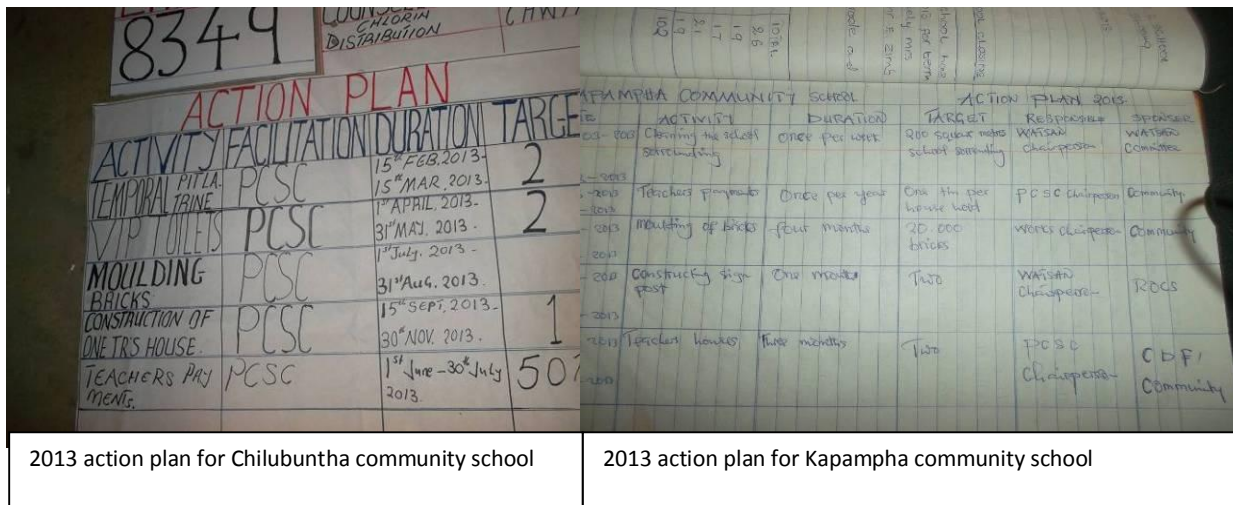 8349
COUNSEL
CHLORIN
DISTRIBUTION
ACTION PLAN
ACTIVITY FACILITATION DURATION TARGE
TEMPORAL PIT LA-
TRINE PCSC 15th FEB, 2013-
15th MAR, 2013. 2
VIP TOILETS PCSC 1st APRIL, 2013-
31st MAY, 2013. 2
MOULDING
BRICKS PCSC 1st July, 2013-
31st AUG, 2013.
CONSTRUCTION OF
ONE TR'S HOUSE. PCSC 15th SEPT, 2013-
30th NOV. 2013. 1
TEACHERS PAY
MENTS. PCSC 1st June - 30th July
2013. 50
APAMPHA COMMUNITY SCHOOL ACTION PLAN 2013
ACTIVITY DURATION TARGET RESPONSIBLE SPONSER
2013 Cleaning the school once per week 200 square metre WATSAN WATSAN
surrounding school chairperson Committee
- 2013
- 2013 Teachers payments Once per year One per PCSC Chairperson Community
- 2013 house hold
Moulding of bricks four months 20.000 works chairperson Community
2013 bricks
2013 Constructing sign One month Two WATSAN ROCS
post Chairperson
- 2013
2013 Teachers houses three months Two PCSC CDF/
2013 Chairperson Community
2013 action plan for Chilubuntha community school
2013 action plan for Kapampha community school